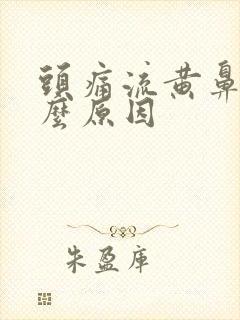 頭痛流黄鼻
麼原因
朱盈庫